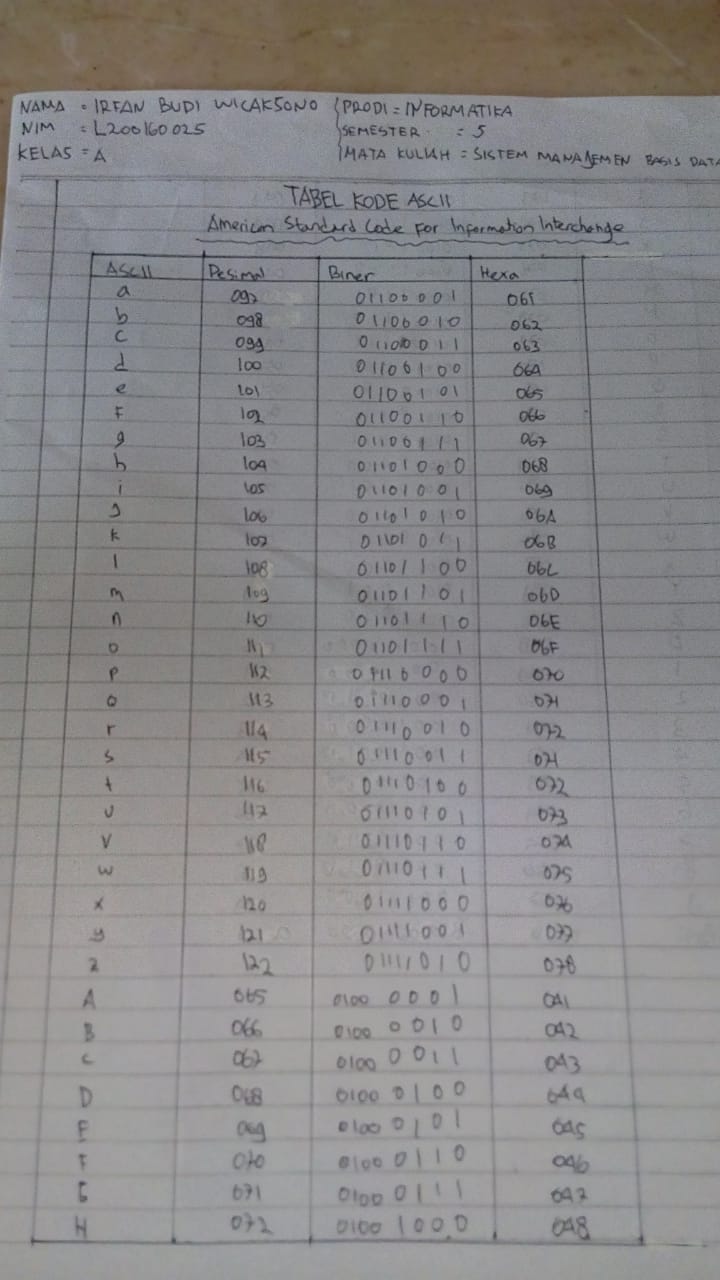 NAMA = IRFAN BUDI WICAKSONO PRODI = INFORMATIKA
NIM = L200160025 SEMESTER = 5
KELAS = A MATA KULIAH = SISTEM MANAJEMEN BASIS DATA
TABEL KODE ASCII
American Standard Code For Information Interchange
ASCII Desimal Biner Hexa
a 097 01100001 061
b 098 01100010 062
c 099 01100011 063
d 100 01100100 064
e 101 01100101 065
f 102 01100110 066
g 103 01100111 067
h 104 01101000 068
i 105 01101001 069
j 106 01101010 06A
k 107 01101011 06B
l 108 01101100 06C
m 109 01101101 06D
n 110 01101110 06E
o 111 01101111 06F
p 112 01110000 070
q 113 01110001 071
r 114 01110010 072
s 115 01110011 071
t 116 01110100 072
u 117 01110101 073
v 118 01110110 074
w 119 01110111 075
x 120 01111000 076
y 121 01111001 077
z 122 01111010 078
A 065 0100 0001 041
B 066 0100 0010 042
C 067 0100 0011 043
D 068 0100 0100 044
E 069 0100 0101 045
F 070 0100 0110 046
G 071 0100 0111 047
H 072 0100 1000 048